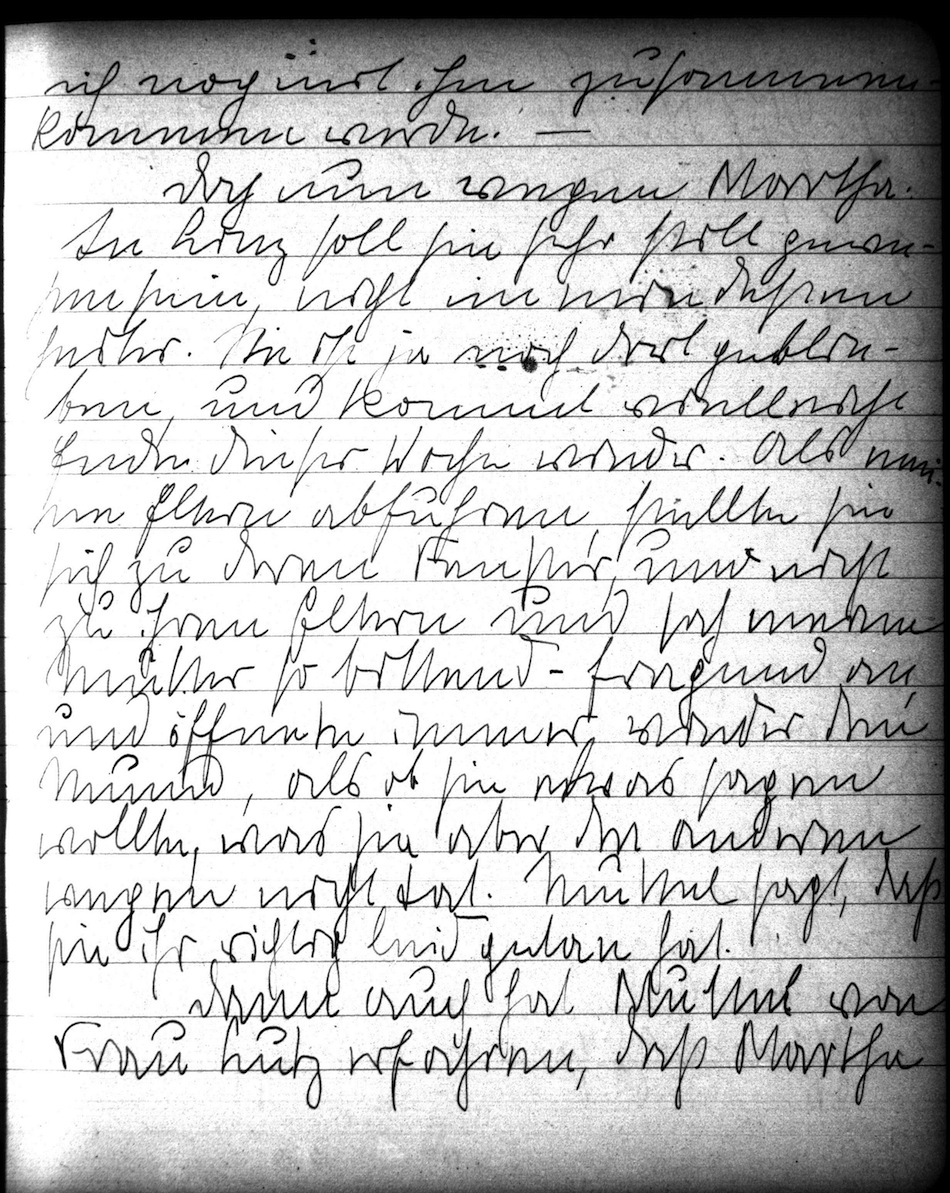 ich noch mit ihm zusammen-
kommen werde. —
Doch nun wegen Martha.
In Linz soll sie sehr still gewe-
sen sein, nicht im mindesten
heiter. Sie ist ja noch dort geblie-
ben, und kommt vielleicht
Ende dieser Woche wieder. Als mei-
ne Eltern abfuhren, stellte sie
sich zu deren Fenster, und nicht
zu ihren Eltern und sah meine
Mutter so bittend-fragend an
und öffnete immer wieder den
Mund, als ob sie etwas sagen
wollte, was sie aber der anderen
wegen nicht tat. Muttel sagt, daß
sie ihr richtig leid getan hat.
Dann auch hat Muttel von
Frau Lutz erfahren, daß Martha